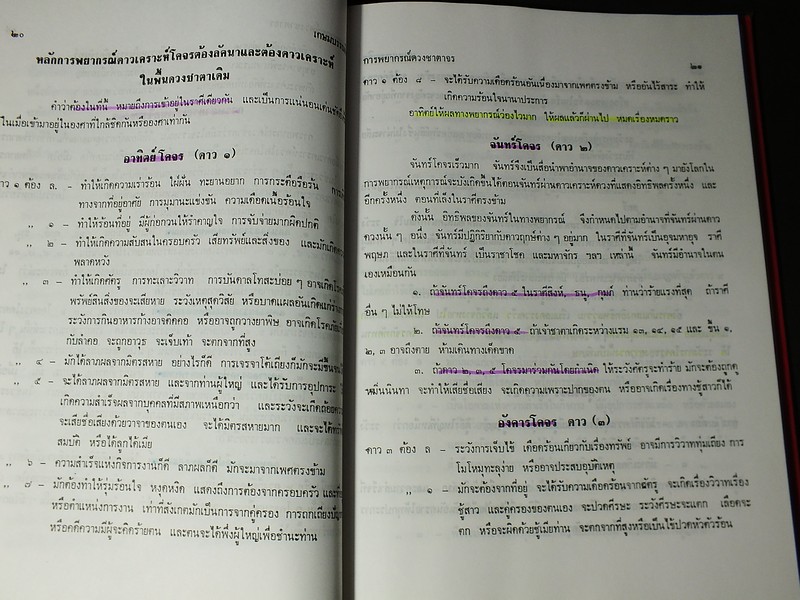 ๒๐
เกษมบรรณ
หลักการพยากรณ์ดาวเคราะห์โคจรต้องลัคนาและต้องดาวเคราะห์
ในพื้นดวงชาตาเดิม
คำว่าต้องในที่นี้ หมายถึงการเข้าอยู่ในราศีเดียวกัน และเป็นการแน่นอนเด่นชัด
ในเมื่อเข้ามาอยู่ในองศาที่ใกล้ชิดกันหรือองศาเท่ากัน
อาทิตย์โคจร (ดาว ๑)
ดาว ๑ ต้อง ล. - ทำให้เกิดความเร่าร้อน ใฝ่ฝัน ทะยานอยาก การกระตือรือร้น การ
ทางจากที่อยู่อาศัย การมุมานะแข่งขัน ความเดือดเนื้อร้อนใจ
,, ๑ - ทำให้ร้อนที่อยู่ มีผู้ก่อกวนให้รำคาญใจ การจับจ่ายมากผิดปกติ
,, ๒ - ทำให้เกิดความสับสนในครอบครัว เสียทรัพย์และสิ่งของ และมักเกิด
พลาดหวัง
,, ๓ - ทำให้เกิดศัตรู การทะเลาะวิวาท การบันดาลโทสะบ่อย ๆ อาจเกิด
พรัพย์สินสิ่งของจะเสียหาย ระวังเหตุสุดวิสัย หรือบาดแผลอันเกิดแก่ร่าง
ระวังการกินอาหารก้างอาจติดคอ หรืออาจถูกวางยาพิษ อาจเกิดโรคภัย
กับลำคอ จะถูกอาวุธ จะเจ็บเท้า จะตกจากที่สูง
,, ๔ - มักได้ลาภผลจากมิตรสหาย อย่างไรก็ดี การเจรจาโต้เถียงก็มักจะมีขึ้น
,, ๕ - จะได้ลาภผลจากมิตรสหาย และจากท่านผู้ใหญ่ และได้รับการอุปการะ
เกิดความสำเร็จผลจากบุคคลที่มีสภาพเหนือกว่า และระวังจะเกิดถ้อย
จะเสียชื่อเสียงด้วยวาจาของตนเอง จะได้มิตรสหายมาก และจะได้
สมบัติ หรือได้ลูกได้เมีย
,, ๖ - ความสำเร็จแห่งกิจการงานก็ดี ลาภผลก็ดี มักจะมาจากเพศตรงข้าม
,, ๗ - มักต้องทำให้รุ่มร้อนใจ หงุดหงิด แสดงถึงการต้องจากครอบครัว และ
หรือตำแหน่งการงาน เท่าที่สังเกตมักเป็นการจากคู่ครอง การถกเถียง
หรือคดีความมีผู้จะคิดร้ายตน และตนจะได้พึ่งผู้ใหญ่เพื่อชำนะท่าน
การพยากรณ์ดวงชาตาจร
๒๑
ดาว ๑ ต้อง ๘ - จะได้รับความเดือดร้อนอันเนื่องมาจากเพศตรงข้าม หรืออันไร้สาระ ทำให้
เกิดความร้อนใจนานาประการ
อาทิตย์ให้ผลทางพยากรณ์ว่องไวมาก ให้ผลแล้วก็ผ่านไป หมดเรื่องหมดราว
จันทร์โคจร (ดาว ๒)
จันทร์โคจรเร็วมาก จันทร์จึงเป็นสื่อนำพาอำนาจของดาวเคราะห์ต่าง ๆ มายังโลกใน
การพยากรณ์เหตุการณ์จะบังเกิดขึ้นได้ตอนจันทร์ผ่านดาวเคราะห์ดวงที่แสดงอิทธิพลครั้งหนึ่ง และ
อีกครั้งหนึ่ง ตอนที่เล็งในราศีตรงข้าม
ดังนั้น อิทธิพลของจันทร์ในทางพยากรณ์ จึงกำหนดไปตามอำนาจที่จันทร์ผ่านดาว
ดวงนั้น ๆ อนึ่ง จันทร์มีปฏิกิริยากับดาวฤกษ์ต่าง ๆ อยู่มาก ในราศีที่จันทร์เป็นอุจมหาอุจ ราศี
พฤษภ และในราศีที่จันทร์ เป็นราชาโชค และมหาจักร ฯลฯ เหล่านี้ จันทร์มีอำนาจในตน
เองเหมือนกัน
๑. ถ้าจันทร์โคจรถึงดาว ๕ ในราศีสิงห์, ธนู, กุมภ์ ท่านว่าร้ายแรงที่สุด ถ้าราศี
อื่น ๆ ไม่ให้โทษ
๒. ถ้าจันทร์โคจรถึงดาว ๕ ถ้าเจ้าชาตาเกิดระหว่างแรม ๑๓, ๑๔, ๑๕ และ ขึ้น ๑,
๒, ๓ อาจถึงตาย ห้ามเดินทางเด็ดขาด
๓. ถ้าดาว ๒, ๓, ๕ โคจรมาร่วมกันโดยกำเนิด ให้ระวังศัตรูจะทำร้าย มักจะต้องถูกดู
หมิ่นนินทา จะทำให้เสียชื่อเสียง จะเกิดความเพราะปากของตน หรืออาจเกิดเรื่องทางชู้สาวก็ได้
อังคารโคจร ดาว (๓)
ดาว ๓ ต้อง ล - ระวังการเจ็บไข้ เดือดร้อนเกี่ยวกับเรื่องทรัพย์ อาจมีการวิวาททุ่มเถียง การ
โมโหมทะลุง่าย หรืออาจประสบอุบัติเหตุ
,, ๑ - มักจะต้องจากที่อยู่ จะได้รับความเดือดร้อนจากศัตรู จะเกิดเรื่องวิวาทเรื่อง
ชู้สาว และคู่ครองของตนเอง จะปวดศีรษะ ระวังศีรษะจะแตก เลือดจะ
ตก หรือจะผิดด้วยชู้เมียท่าน จะตกจากที่สูงหรือเป็นไข้ปวดหัวตัวร้อน